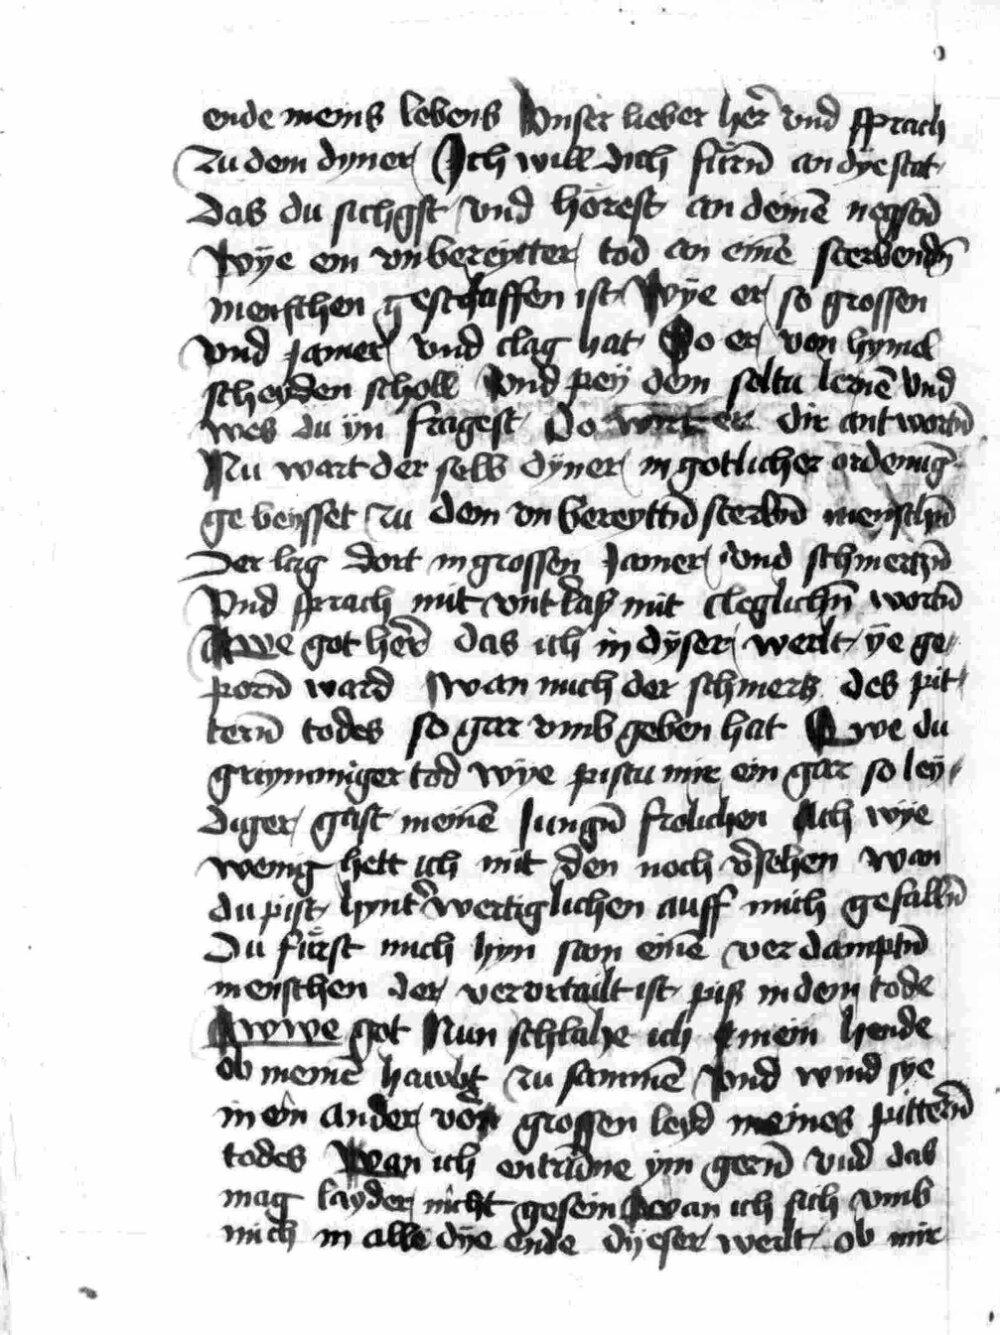 ende meins lebens Vnser lieber her̄ vnd sprach
zu dem dyner Ich will dich fürn̄ an dye stat
Das du sichgst vnd hörest an deinē negstn̄
Wye ein vnbereytter tod an einē sterbendn̄
menschen geschaffen ist Wye er so grossen
vnd jamer vnd clag hat So er von hynnē
scheyden scholl Vnd pey dem soltu lernē Vnd
wes du yn fragest Do wirt er dir antwortn̄
Nu wart der selb dyner in gotlicher ordenūg
geweysset zu dem vnbereyttn̄ sterbn̄ menschn̄
Der lag dort in grossen Jamer vnd schmertzn̄
Vnd sprach mit vnterlaß mit cleglichn̄ wortn̄
Awe got her̄ das ich in dyser werlt ye ge
porn̄ ward Wan mich der schmertz des pit
tern̄ todes so gar vmb geben hat Awe du
grymmiger tod wye pistu mir ein gar so ley
diger gast meinē Jungn̄ frolichen Ach wye
wenig hett ich mit den noch v̄sehen wan
du pist hynt̄ wertiglichen auff mich gefalln̄
Du fürst mich hyn sam einē verdamptn̄
menschen der verortailt ist piß in dem tode
Awwe got Nun schlahe ich mein hende
ob meinē hawbt zu sammē Vnd wind sye
in ein ander von grossen leyd meines pittern̄
todes Wan ich entrūne ym gern̄ vnd das
mag layder nicht gesein Wan ich sich vmb
mich in alle dye ende dyeser werlt ob mir